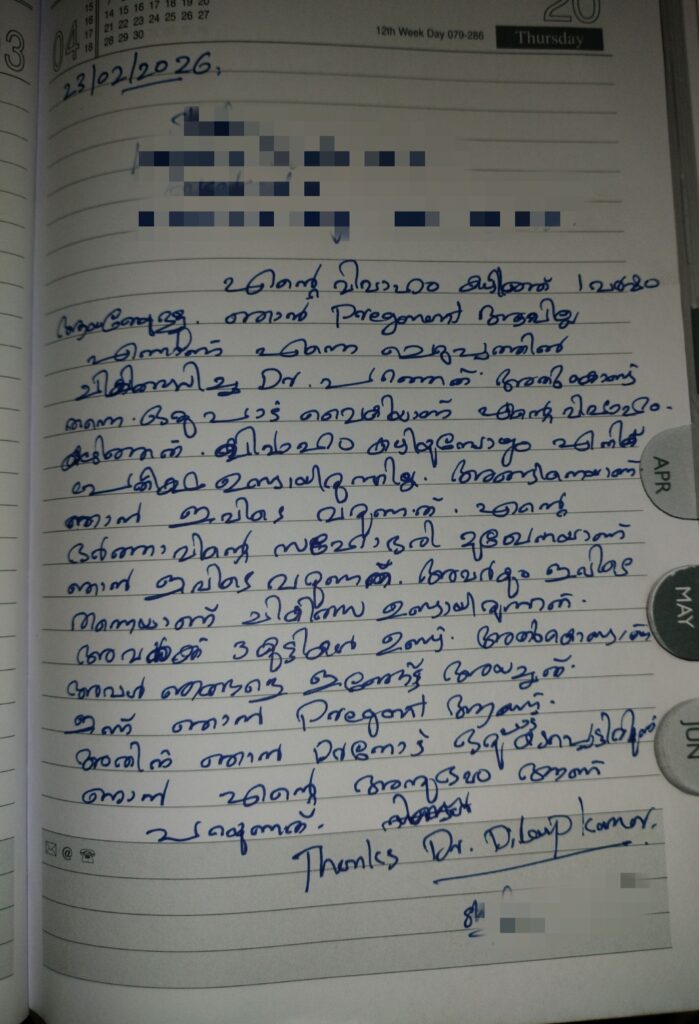 15 14 15 16 17 18 19 20
16 21 22 23 24 25 26 27
17 28 29 30
18
04
3
20
12th Week Day 079-286
Thursday
23/02/2026,
എന്റെ വിവാഹം കഴിഞ്ഞ് 1 വർഷം
ആയതേയുള്ളൂ. ഞാൻ Pregnant ആവില്ല
എന്നാണ് എന്നെ ചെറുപ്പത്തിൽ
ചികിത്സിച്ച Dr. പറഞ്ഞത്. അതുകൊണ്ട്
തന്നെ ഒരുപാട് വൈകിയാണ് എന്റെ വിവാഹം
കഴിഞ്ഞത്. വിവാഹം കഴിയുമ്പോഴും എനിക്ക്
പ്രതീക്ഷ ഉണ്ടായിരുന്നില്ല. അങ്ങിനെയാണ്
ഞാൻ ഇവിടെ വരുന്നത്. എന്റെ
ഭർത്താവിന്റെ സഹോദരി മുഖേനയാണ്
ഞാൻ ഇവിടെ വരുന്നത്. അവർക്കും ഇവിടെ
തന്നെയാണ് ചികിത്സ ഉണ്ടായിരുന്നത്.
അവർക്ക് 3 കുട്ടികൾ ഉണ്ട്. അതുകൊണ്ടാണ്
അവൾ ഞങ്ങളെ ഇങ്ങോട്ട് അയച്ചത്.
ഇന്ന് ഞാൻ Pregnant ആണ്.
അതിന് ഞാൻ Drനോട് ഒരുപാട്
ഞാൻ എന്റെ അനുഭവം ആണ്
പറയുന്നത്.
Thanks Dr. Dileep Kumar.
APR
MAY
JUN